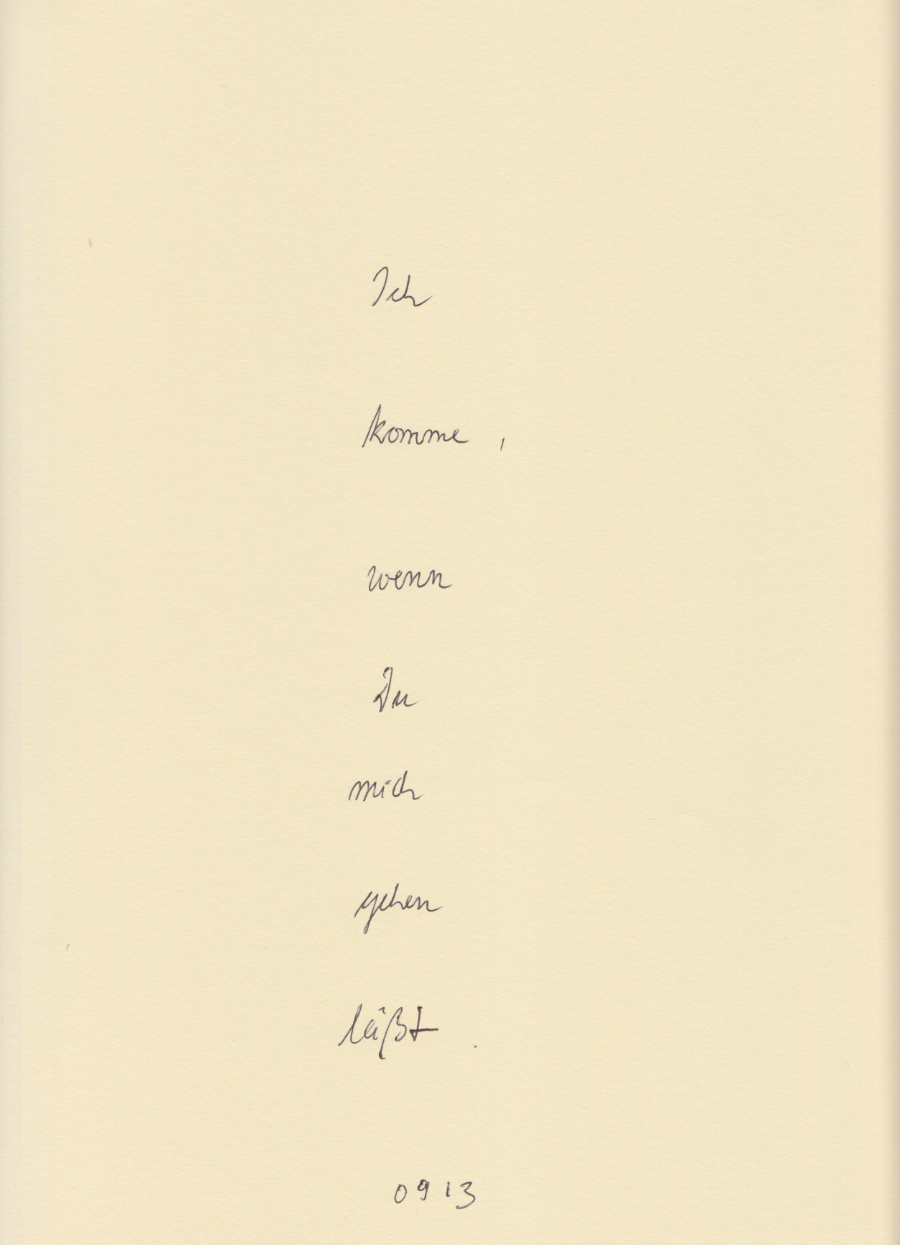 Ich
komme ,
wenn
Du
mich
gehen
läßt .
0913